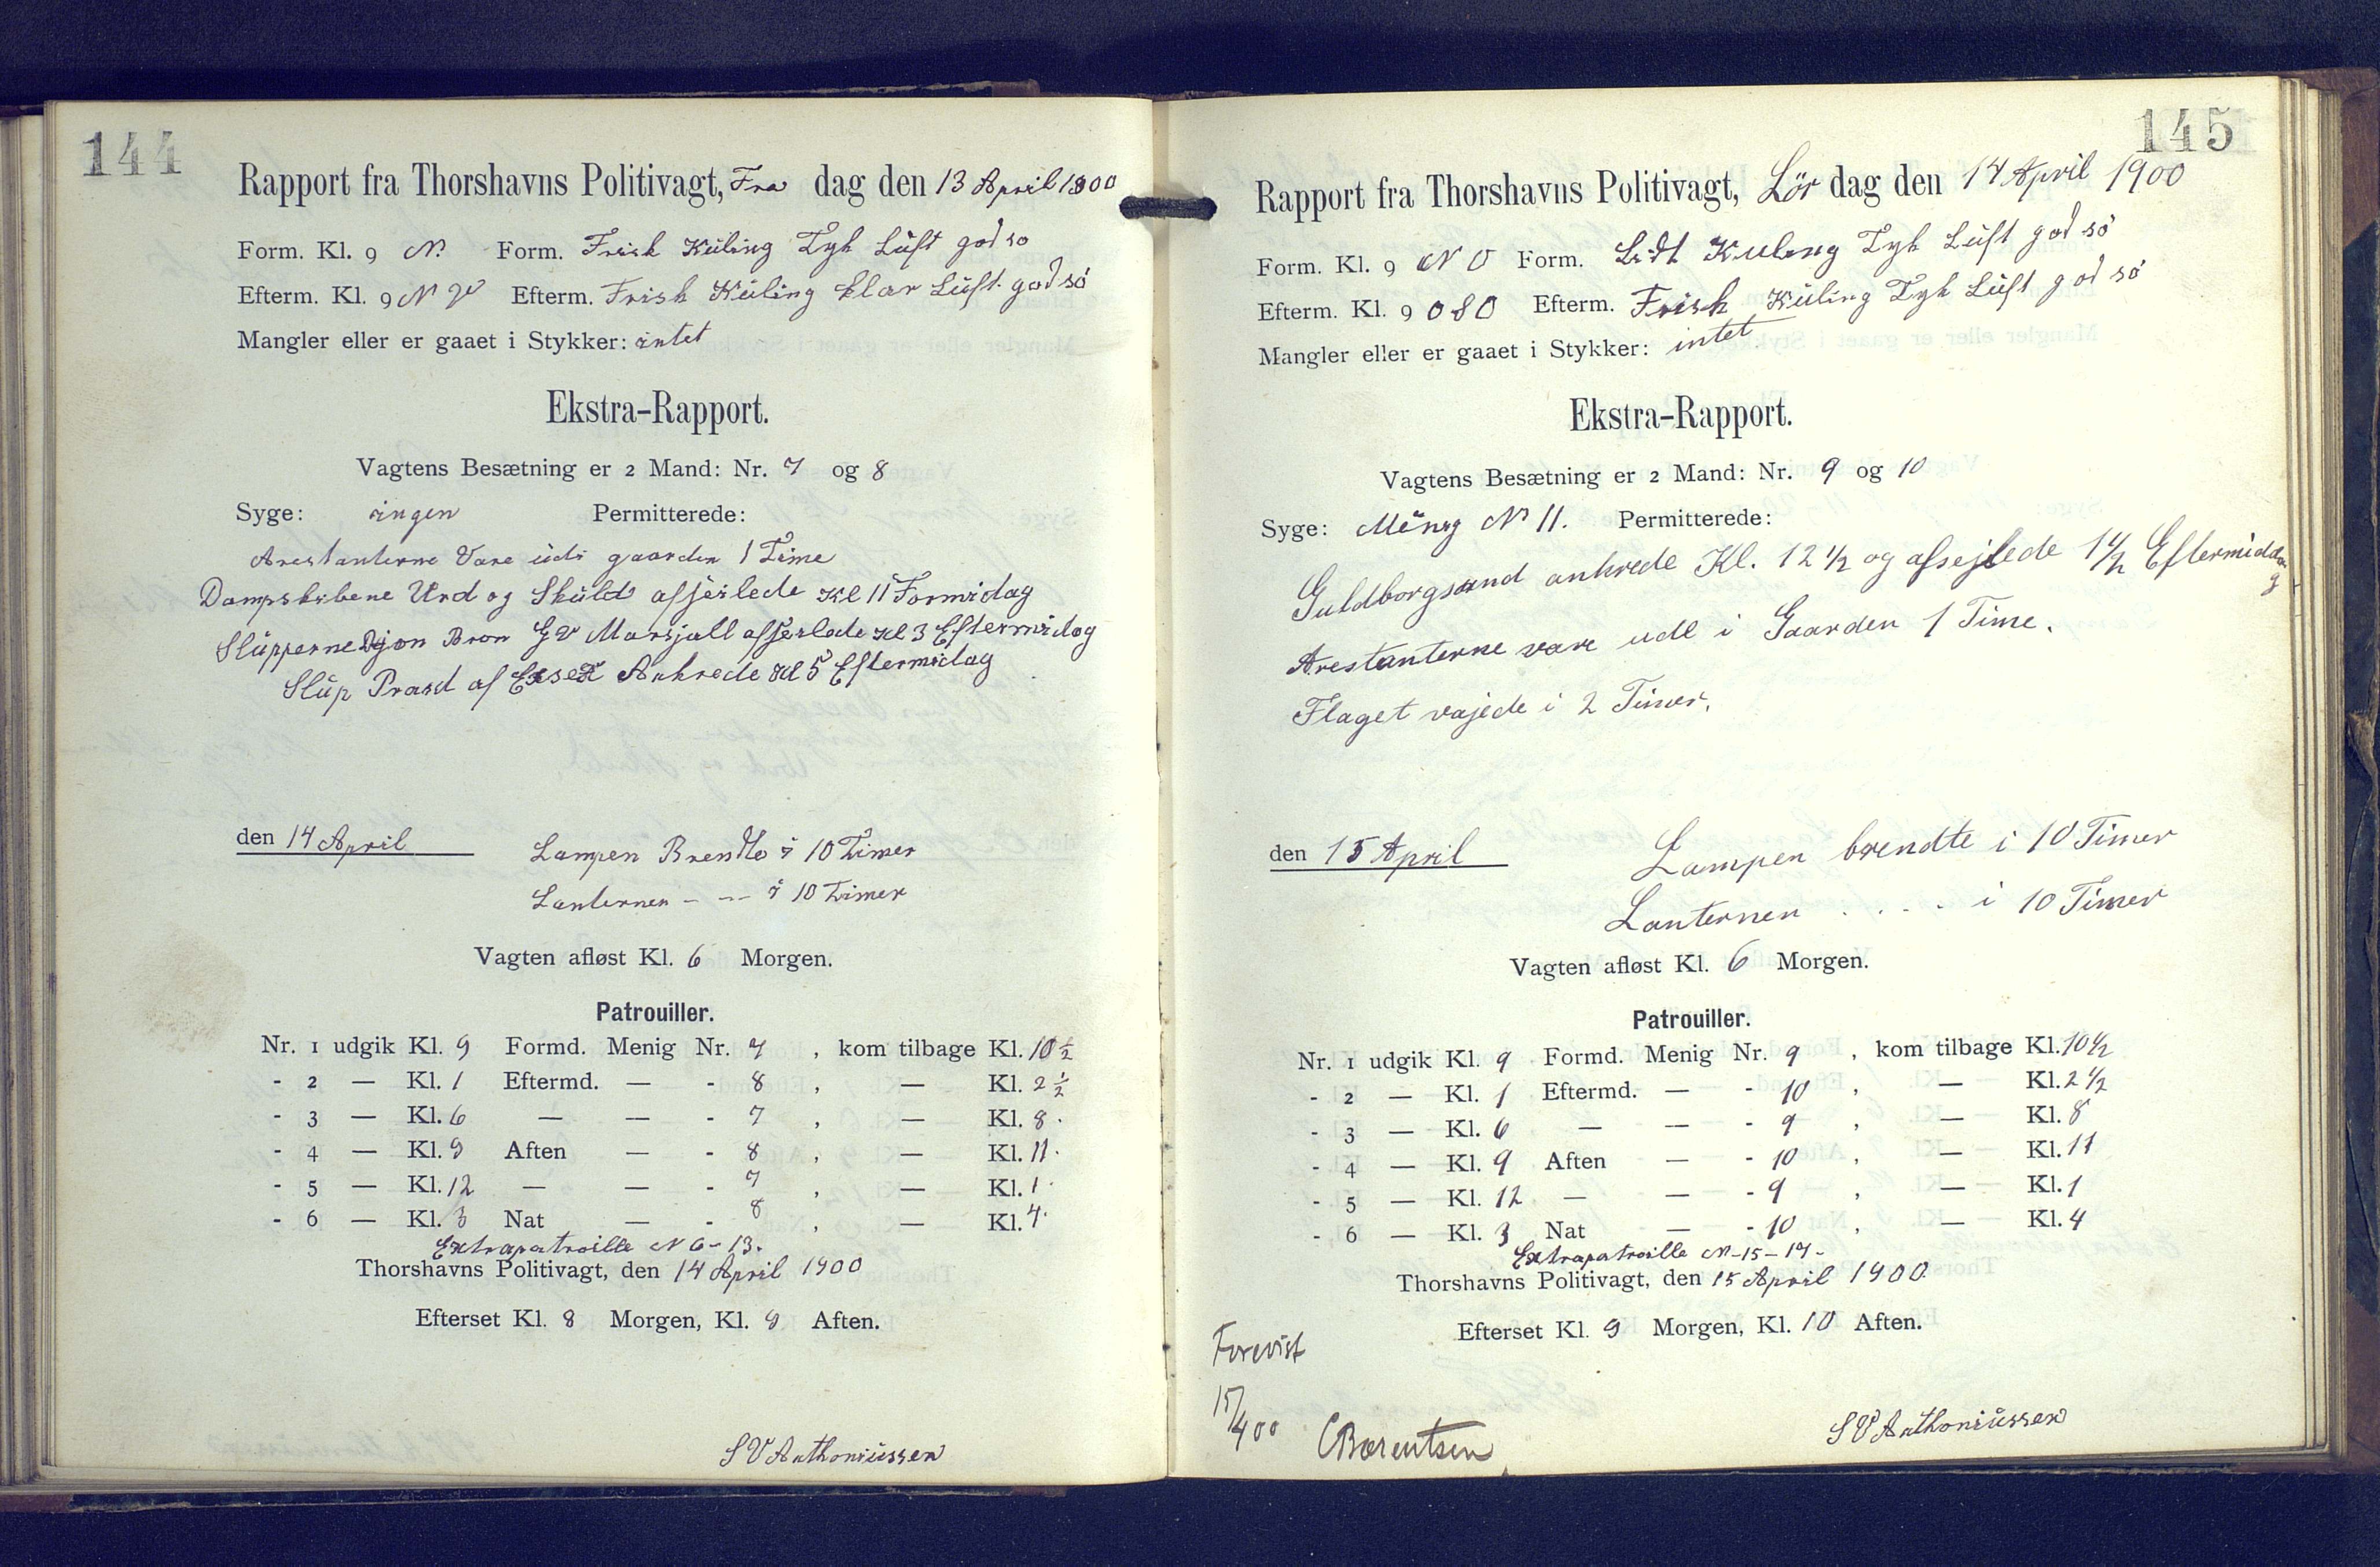 144
Rapport fra Thorshavns Politivagt, Fra dag den 13 April 1900
Form. Kl. 9 N. Form. Frisk Kuling Tyk Luft god so
Efterm. Kl. 9 N V Efterm. Frisk Kuling klar Luft god sö
Mangler eller er gaaet i Stykker: intet
Ekstra-Rapport.
Vagtens Besætning er 2 Mand: Nr. 7 og 8
Syge: ingen Permitterede:
Arestanterne Vare udi gaarden 1 Time
Dampskibene Urd og Skuld afseilede Kl 11 Formidag
Slupperne Djon Bron G V Marsjall afseilede Kl 3 Eftermidag
Slup af Essex Ankrede Kl 5 Eftermidag
den 14 April Lampen Brendte i 10 Timer
Lanternen - -- i 10 Timer
Vagten afløst Kl. 6 Morgen.
Patrouiller.
Nr. 1 udgik Kl. 9 Formd. Menig Nr. 7 , kom tilbage Kl. 10 ½
- 2 — Kl. 1 Eftermd. — - 8 , — Kl. 2 ½
- 3 — Kl. 6 — — - 7 , — Kl. 8.
- 4 — Kl. 9 Aften — - 8 , — Kl. 11.
- 5 — Kl. 12 — — - 7 , — Kl. 1.
- 6 — Kl. 3 Nat — - 8 , — Kl. 4.
Extrapatroille N 6-13.
Thorshavns Politivagt, den 14 April 1900
Efterset Kl. 8 Morgen, Kl. 9 Aften.
S V Anthoniussen
145
Rapport fra Thorshavns Politivagt, Lör dag den 14 April 1900
Form. Kl. 9 N O Form. Lidt Kuleng Tyk Luft god sö
Efterm. Kl. 9 O S O Efterm. Frisk Kuling Tyk Luft god sö
Mangler eller er gaaet i Stykker: intet
Ekstra-Rapport.
Vagtens Besætning er 2 Mand: Nr. 9 og 10
Syge: Menig Nr 11. Permitterede:
Guldborgsund ankrede Kl. 12 1/2 og afsejlede 1 1/2 Eftermiddag
Arestanterne vare ude i Gaarden 1 Time.
Flaget vajede i 2 Timer.
den 15 April Lampen brendte i 10 Timer
Lanternen . . . . i 10 Timer
Vagten afløst Kl. 6 Morgen.
Patrouiller.
Nr. 1 udgik Kl. 9 Formd. Menig Nr. 9 , kom tilbage Kl. 10 1/2
- 2 — Kl. 1 Eftermd. — - 10 , — Kl. 2 1/2
- 3 — Kl. 6 — — - 9 , — Kl. 8
- 4 — Kl. 9 Aften — - 10 , — Kl. 11
- 5 — Kl. 12 — — - 9 , — Kl. 1
- 6 — Kl. 3 Nat — - 10 , — Kl. 4
Extrapatroille N-15-14-
Thorshavns Politivagt, den 15 April 1900.
Efterset Kl. 9 Morgen, Kl. 10 Aften.
Forevist
15/4 00 CBærentsen
S V Anthoniussen